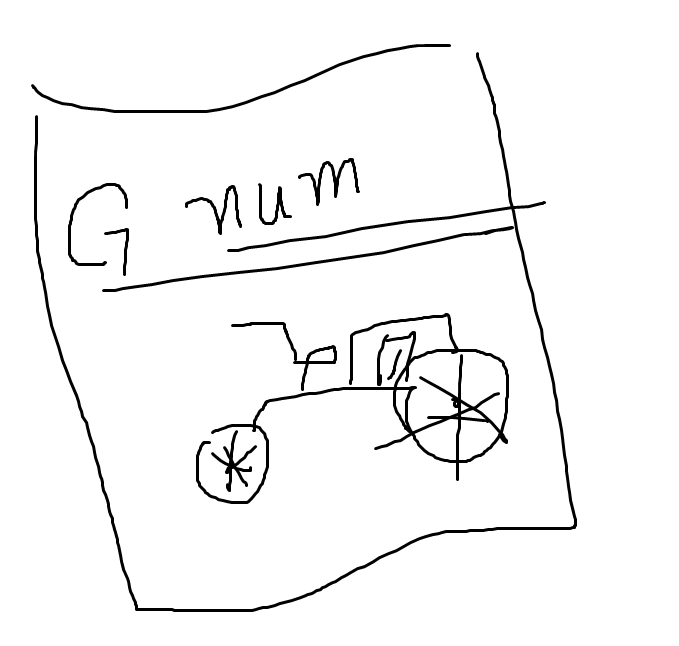 G num